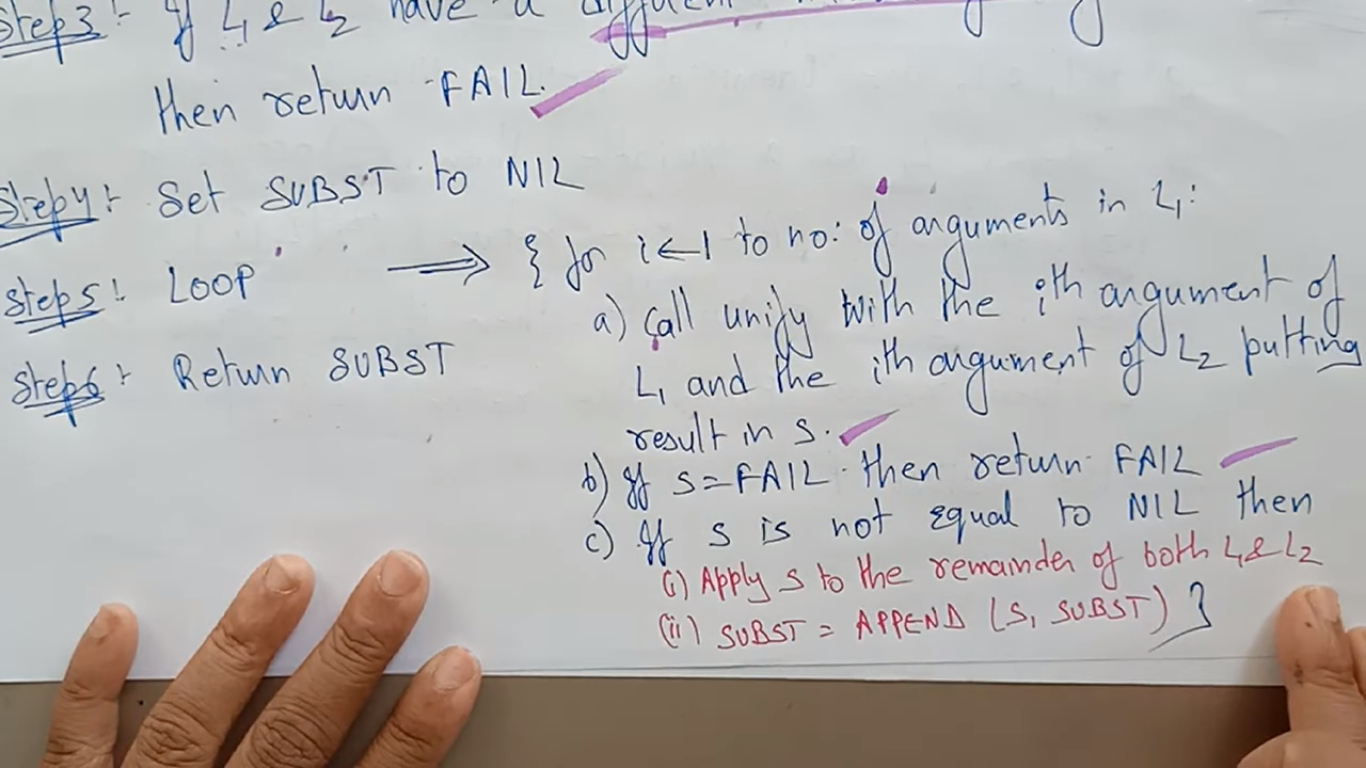 Step3:- If L1 & L2 have a different
then return FAIL.
Step4:- Set SUBST to NIL
Step5:- LOOP ⟹ { for i←1 to no: of arguments in L1:
a) Call unify with the ith argument of
L1 and the ith argument of L2 putting
result in S.
b) If S=FAIL then return FAIL
c) If S is not equal to NIL then
(i) Apply S to the remainder of both L1 & L2
(ii) SUBST = APPEND (S, SUBST) }
Step6:- Return SUBST